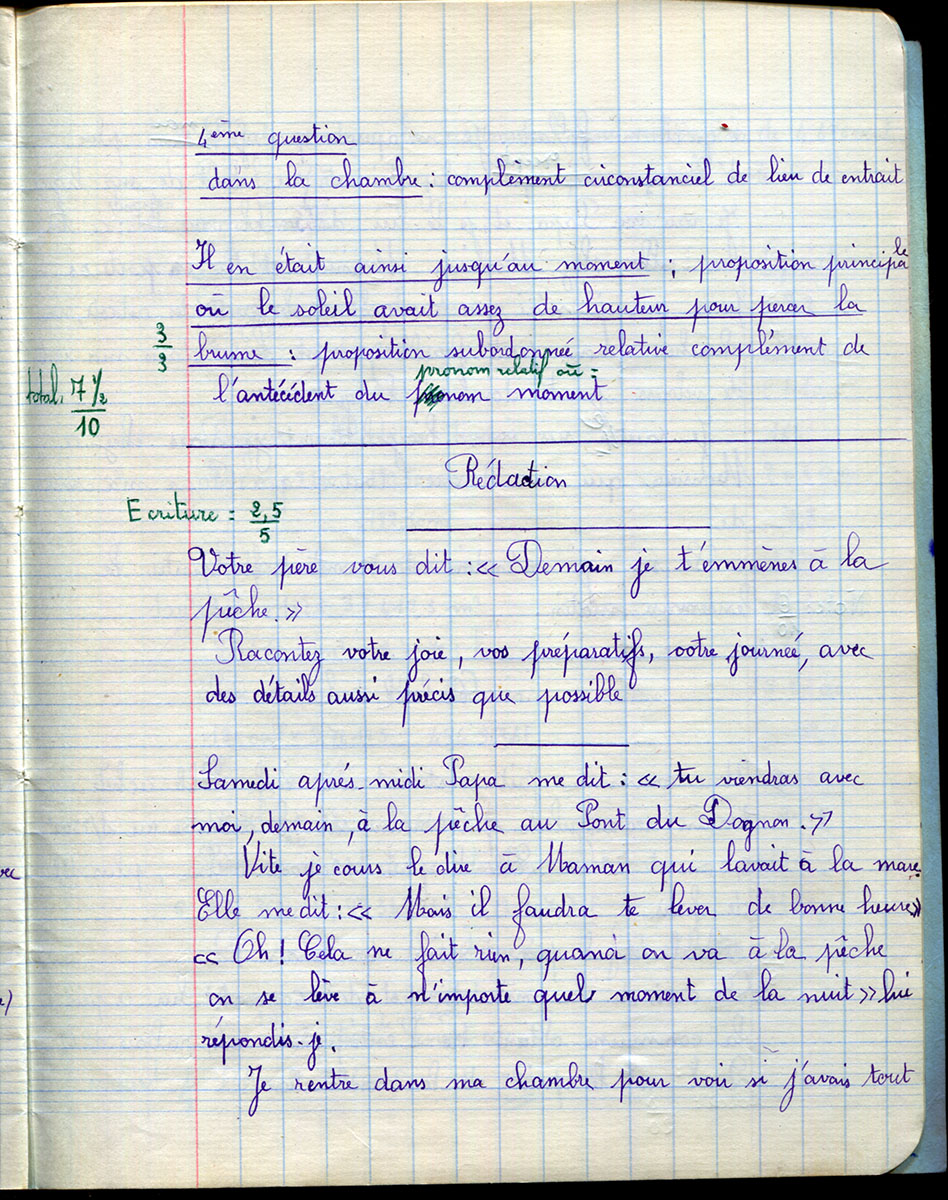 4ème question
dans la chambre : complément circonstanciel de lieu de entrait
Il en était ainsi jusqu'au moment ; proposition principale
où le soleil avait assez de hauteur pour percer la
3/3
brume : proposition subordonnée relative complément de
pronom relatif où =
total. 7 1/2 / 10
l'antécédent du moment
Rédaction
Ecriture = 2,5/5
Votre père vous dit : « Demain je t'émmènes à la
pêche. »
Racontez votre joie, vos préparatifs, votre journeé, avec
des détails aussi précis que possible
Samedi aprés-midi Papa me dit : « tu viendras avec
moi, demain, à la pêche au Pont du Dognon. »
Vite je cours le dire à Maman qui lavait à la mare.
Elle me dit : « Mais il faudra te lever de bonne heure »
« Oh ! Cela ne fait rien, quand on va à la pêche
on se lève à n'importe quel moment de la nuit » lui
répondis-je.
Je rentre dans ma chambre pour voir si j'avais tout